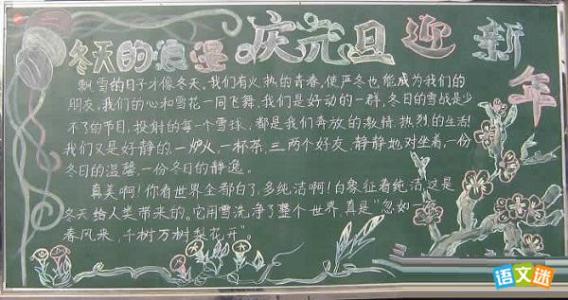 冬天的浪漫 庆元旦迎新年
飘雪的日子才像冬天。我们有火热的青春,使严冬也能成为我们的
朋友,我们的心和雪花一同飞舞。我们是好动的一群,冬日的雪战是少
不了的节目,投射的每一个雪球,都是我们奔放的激情,热烈的生活!
我们又是好静的,一炉火,一杯茶,三两个好友,静静地对坐着,一份
冬日的温馨,一份冬日的静逸。
真美啊!你看世界全都白了,多纯洁啊!白象征着纯洁,这是
冬天给人类带来的。它用雪洗净了整个世界,真是“忽如一夜
春风来,千树万树梨花开”。
语文迷